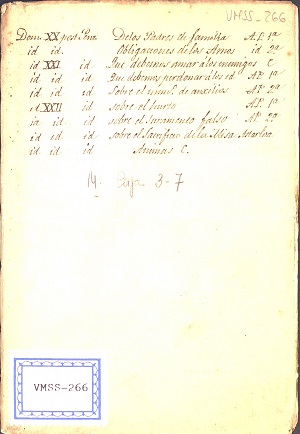 VMSS-266
Dom. XX post. Pen. De los Padres de familia A.P. 1ª
id id. Obligaciones de los Amos id 2ª
id XXI. id Que debemos amar a los enemigos C
id id id Que debemos perdonar a los id AP. 1ª
id id id Sobre el num.º de auxilios AP. 2ª
id XXII id sobre el hurto AP. 1ª
id id id sobre el Juramento falso AP. 2ª
id id id sobre el Sacrificio de la Misa
id id id Animas C.
14. Caja 3-7
VMSS-266